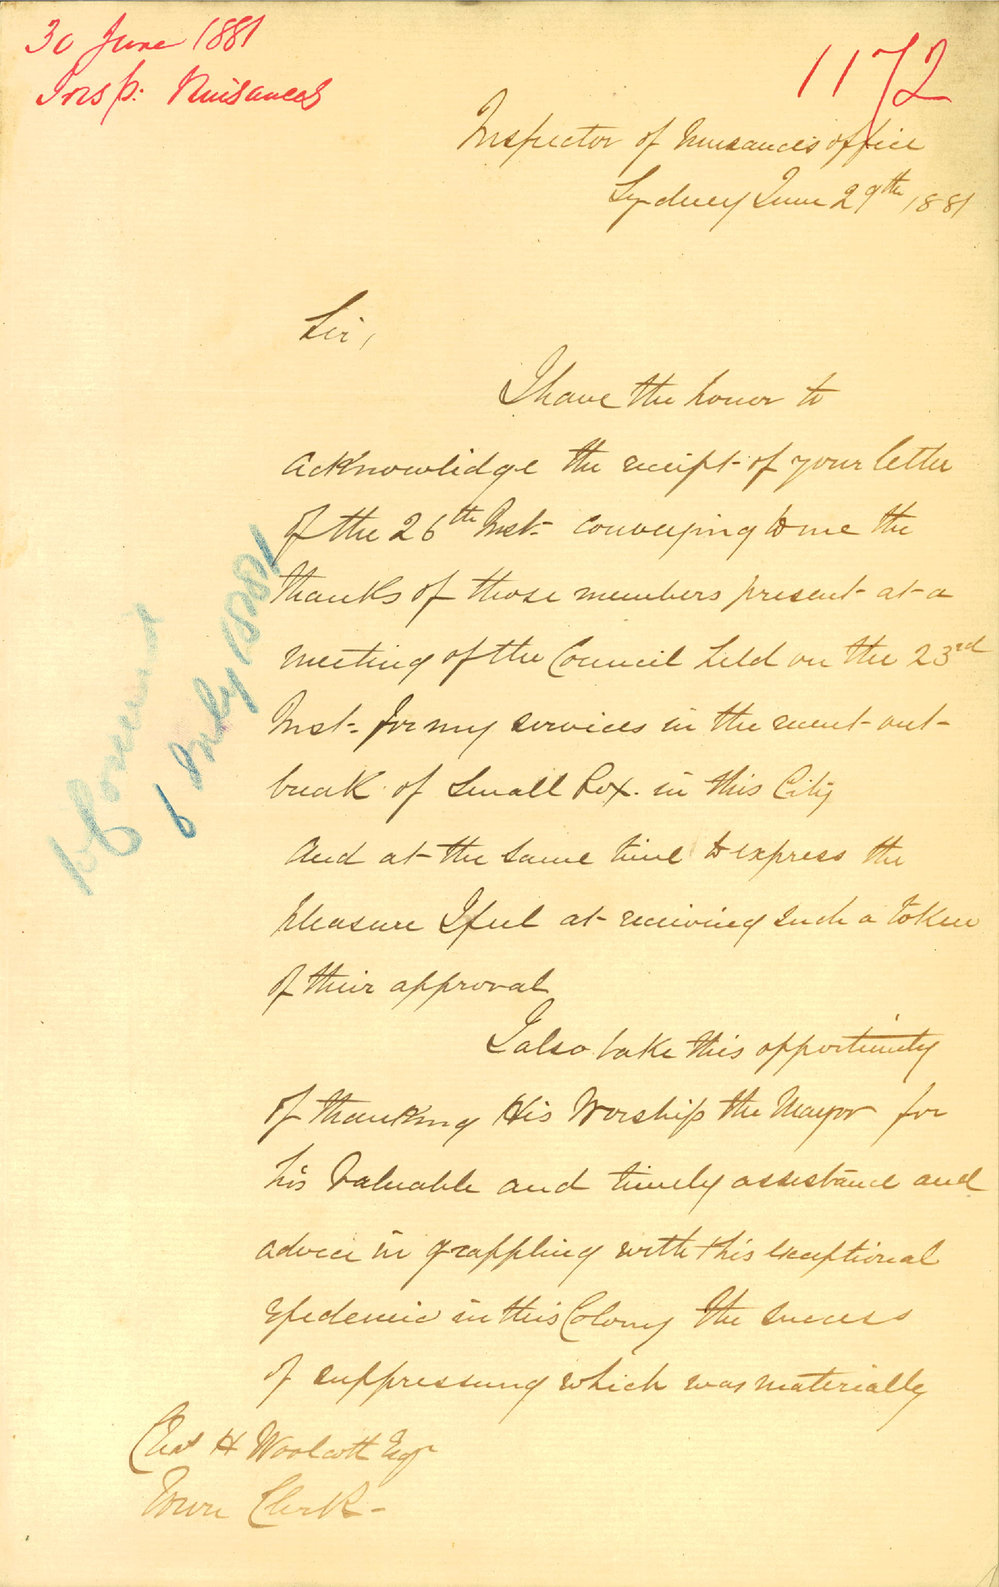 30 June 1881
Insp: Nuisances
1172
Inspector of Nuisances office
Sydney June 29th 1881
Sir,
I have the honor to
acknowlidge the receipt of your letter
of the 26th Inst. conveying to me the
thanks of those members present at a
meeting of the Council held on the 23rd
Inst. for my services in the recent out-
break of Small Pox. in this City
And at the same time to express the
pleasure I feel at receiving such a token
of their approval
I also take this opportunity
of thanking His Worship the Mayor for
his valuable and timely assistance and
advice in grappling with this exceptional
Epedemic in this Colony The success
of suppressing which was materially
Chas H Woolcott Esqr
Town Clerk -
to Council
6 July 1881